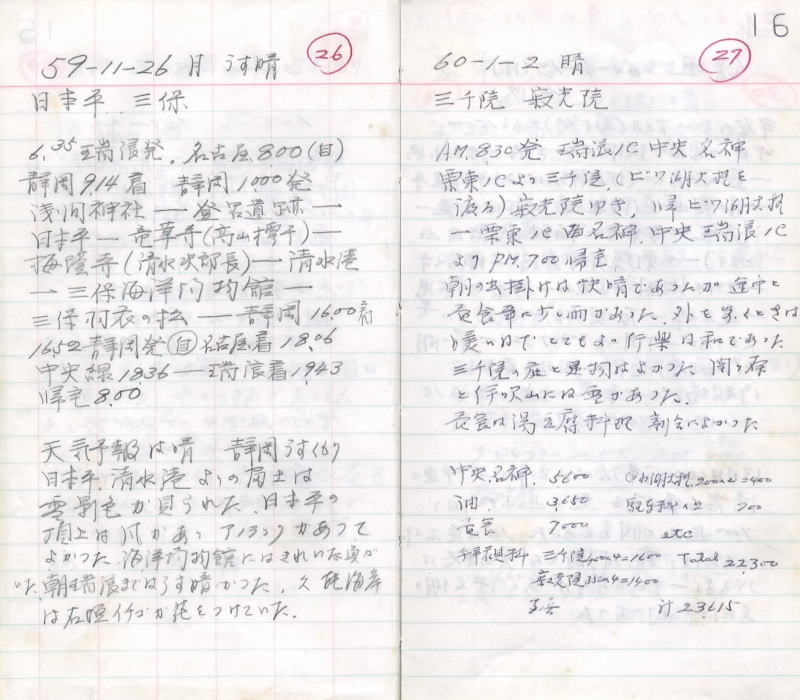 59-11-26 月 うす晴
26
日本平 三保
6.35 瑞浪発. 名古屋 8.00 (自)
静岡 9.14 着 静岡 10.00 発
浅間神社 — 登呂遺跡 —
日本平 — 竜華寺 (高山樗牛) —
梅蔭寺 (清水次郎長) — 清水港
— 三保海洋博物館 —
三保羽衣の松 — 静岡 16.00 着
16.52 静岡発 自 名古屋着 18.06
中央線 18.36 — 瑞浪着 19.43
帰宅 8.00
天気予報は晴 静岡うすくもり
日本平 清水港よりの富士は
雪景色が見られた. 日本平の
頂上は風があり アノラックがあって
よかった. 海洋博物館にはきれいな魚が
いた. 朝瑞浪まではうす晴かった. 久能海岸
は石垣イチゴが花をつけていた.
16
60-1-2 晴
27
三千院 寂光院
AM. 8.30 発 瑞浪IC 中央 名神
栗東ICより 三千院, (ビワ湖大橋を
渡る) 寂光院ゆき, 帰ビワ湖大橋
— 栗東IC 西名神. 中央 瑞浪IC
より PM. 7.00 帰宅
朝の出掛けは快晴であったが 途中と
昼食事に少し雨があった. 外を歩くときは
暖い日で とてもよい行楽日和であった
三千院の庭と建物はよかった 関ヶ原
と伊吹山には雪があった.
昼食は湯豆腐料理
中央.名神. 5600
ビワ湖大橋. 200×2=400
油. 3,650
駐車料×2 700
昼食 7000
etc
拝観料 三千院 400×4=1600 Total 22,300
寂光院 350×4=1400
計 23,615